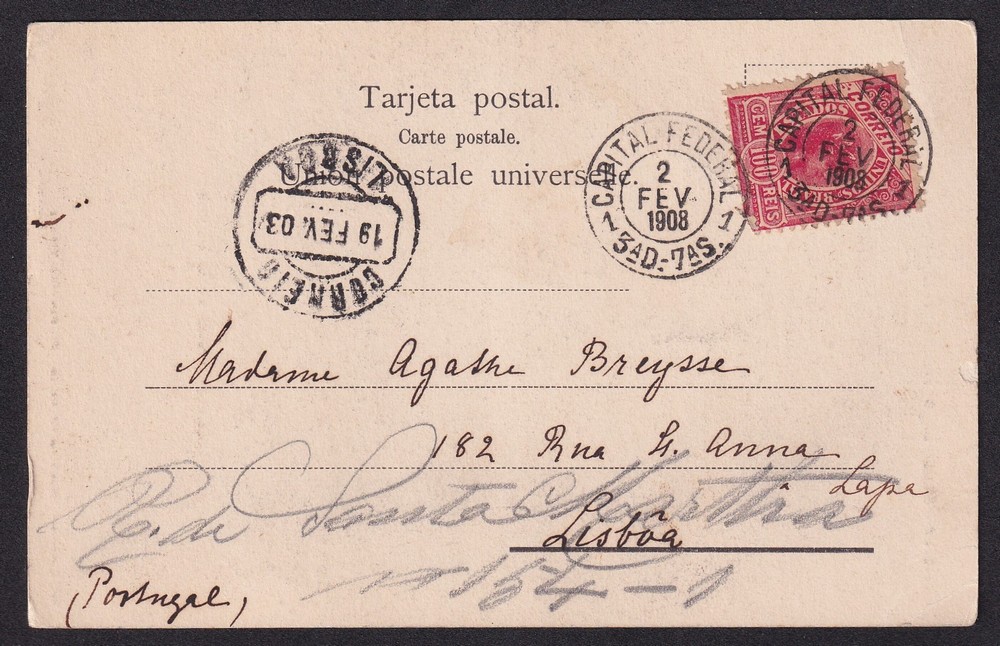 Tarjeta postal.
Carte postale.
Union postale universelle.
LISBOA
19 FEV. 03
CORREIO
CAPITAL FEDERAL
2
FEV.
1908
1 3ªD.-7ªS. 1
CAPITAL FEDERAL
2
FEV.
1908
1 3ªD.-7ªS. 1
CORREIO
CEM 100 REIS
Madame Agathe Breysse
182 Rua St. Anna
à Lapa
Lisbõa
R. de Santa Martha
nº 154-1
(Portugal)